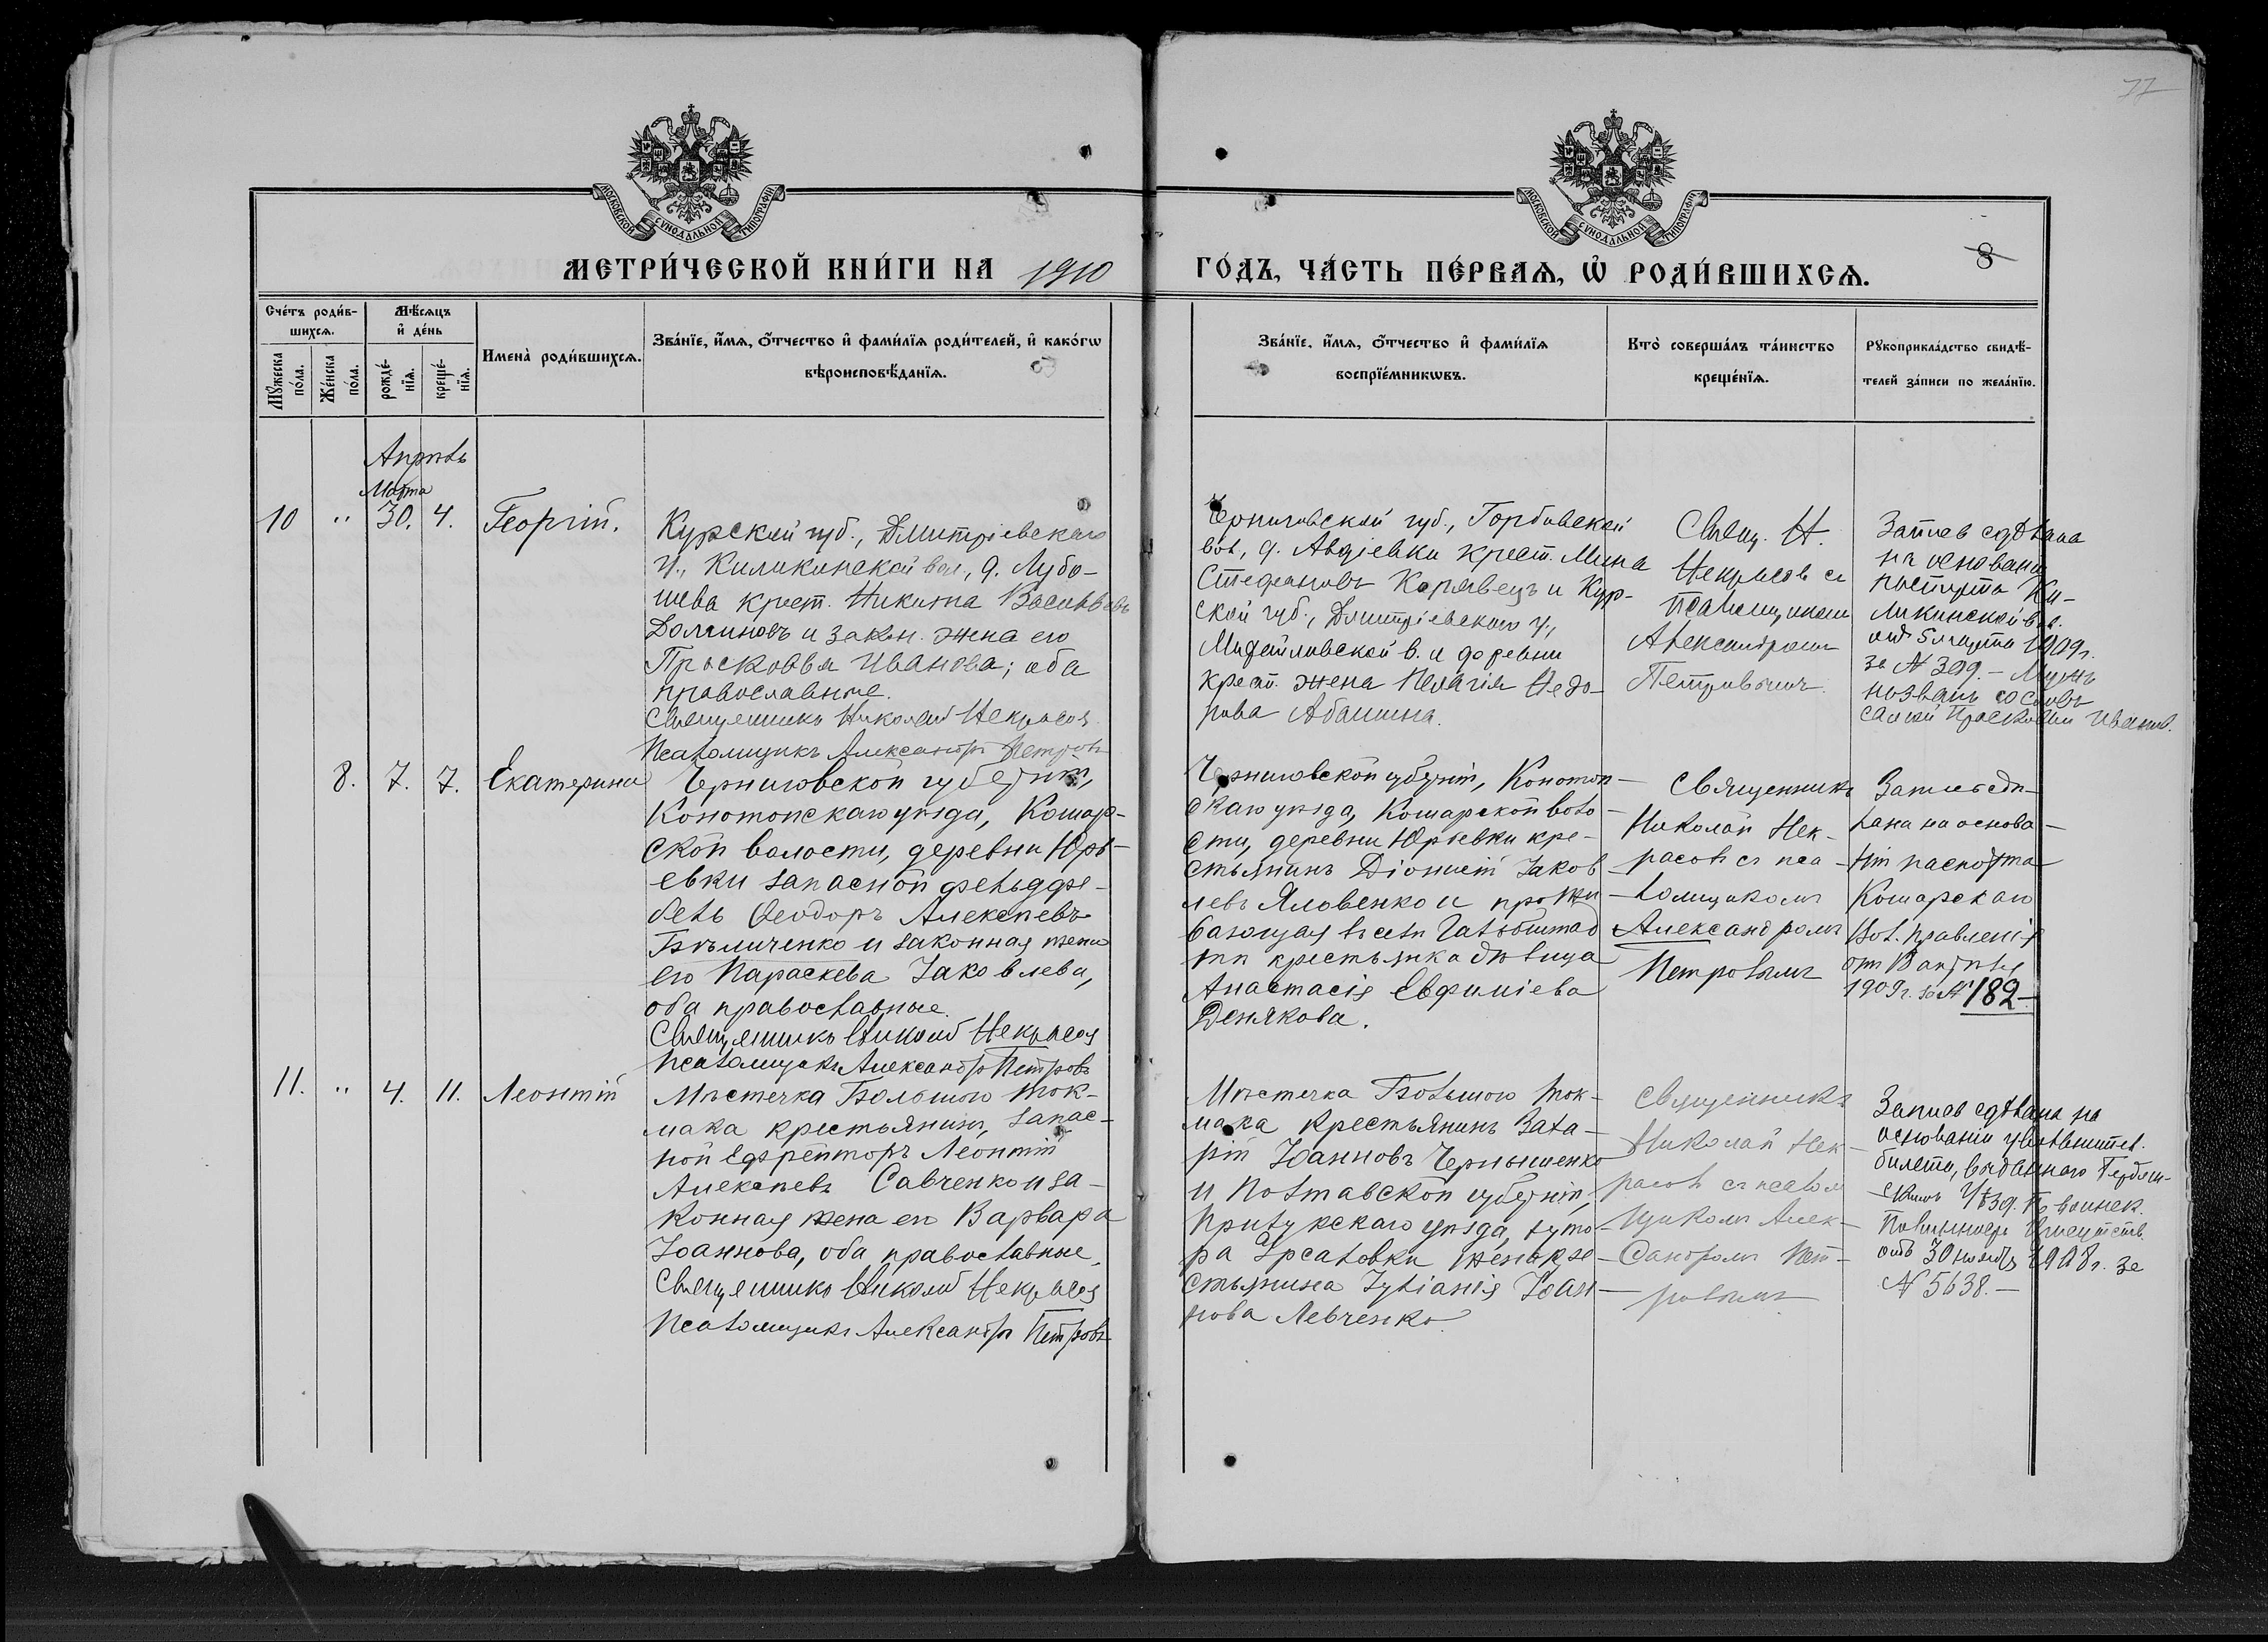 77
МОСКОВСКОЙ СѴНОДАЛЬНОЙ ТИПОГРАФІИ
МОСКОВСКОЙ СѴНОДАЛЬНОЙ ТИПОГРАФІИ
8
МЕТРИ́ЧЕСКОЙ КНИ́ГИ НА 1910
ГО́ДЪ, ЧА́СТЬ ПЕ́РВАѦ, Ѡ҆ РОДИ́ВШИХСѦ.
Сче́тъ роди́в-
шихсѧ.
Мꙋ́жеска
по́ла.
Же́нска
по́ла.
Мѣ́сѧцъ
и҆ де́нь
рожде́-
нїѧ.
креще́-
нїѧ.
Имена̀ роди́вшихсѧ.
Зва́нїе, и҆́мѧ, ѻ҆́тчество и҆ фами́лїѧ роди́телей, и҆ како́гѡ
вѣроисповѣ́данїѧ.
Зва́нїе, и҆́мѧ, ѻ҆́тчество и҆ фами́лїѧ
воспрїе́мникѡвъ.
Кто̀ соверша́лъ та́инство
креще́нїѧ.
Рꙋкоприкла́дство свидѣ́-
телей за́писи по жела́нїю.
Апрѣль
Марта
10 " 30. 4. Георгій.
Курской губ., Дмитріевскаго
у., Киликинской вол., д. Лубо-
шева крест. Никита Васильевъ
Долгиновъ и закон. жена его
Прасковья Иванова; оба
православные.
Священникъ Николай Некрасов
Псаломщикъ Александръ Петровъ
Черниговской губ., Горбовской
вол., д. Авдіевки крест. Мина
Стефановъ Корявецъ и Кур-
ской губ., Дмитріевскаго у.,
Михайловской в. и деревни
крест. жена Пелагія Ѳедо-
рова Абашина.
Свящ. Н.
Некрасовъ съ
псаломщиком
Александром
Петровымъ.
Запись сдѣлана
на основаніи
паспорта Ки-
ликинской вол.
отъ 5 1909 г.
за № 399. – Мужъ
названъ со словъ
самой Прасковьи Иванов.
8. 7. 7. Екатерина
Черниговской губерніи,
Конотопскаго уѣзда, Кошар-
ской волости, деревни Юрь-
евки запасной фельдфе-
бель Ѳеодоръ Алексѣевъ
Бѣличенко и законная жена
его Параскева Іаковлева,
оба православные.
Священникъ Николай Некрасов
Псаломщикъ Александръ Петровъ
Черниговской губерніи, Конотоп-
скаго уѣзда, Кошарской воло-
сти, деревни Юрьевки кре-
стьянинъ Діонисій Іаков-
левъ Яловенко и прожи-
вающая въ селѣ Гальбштад-
тѣ крестьянка дѣвица
Анастасія Евфиміева
Денякова.
Священникъ
Николай Нек-
расовъ съ пса-
ломщикомъ
Александромъ
Петровымъ
Запись сдѣ-
лана на основа-
ніи паспорта
Кошарскаго
Вол. правленія
от апрѣля
1909 г. за № 182
11. " 4. 11. Леонтій
Мѣстечка Большого Ток-
мака крестьянинъ, запас-
ной Ефрейторъ Леонтій
Алексѣевъ Савченко и за-
конная жена его Варвара
Іоаннова, оба православные.
Священникъ Николай Некрасов
Псаломщикъ Александръ Петровъ
Мѣстечка Большого Ток-
мака крестьянинъ Заха-
рій Іоанновъ Чернышенко
и Полтавской губерніи,
Прилукскаго уѣзда, хуто-
ра жена кре-
стьянина Іуліанія Іоан-
нова Левченко
Священникъ
Николай Нек-
расовъ съ псалом-
щикомъ Алек-
сандромъ Пет-
ровымъ
Запись сдѣлана на
основаніи увольнител.
билета, выданнаго Бердян-
скимъ Уѣзд. по воинск.
Повинности Присутств.
отъ 30 ноября 1908 г. за
№ 5638. –